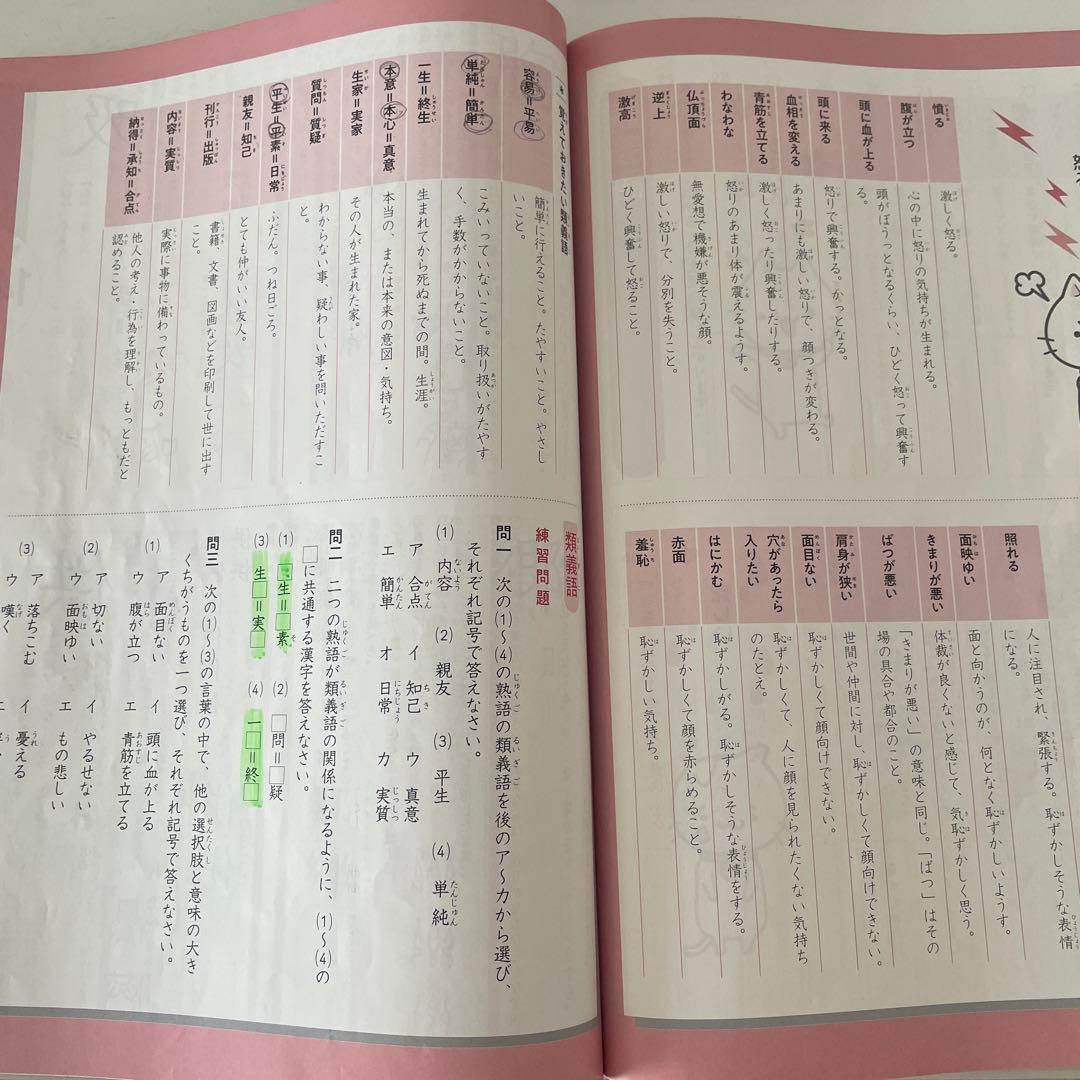 憤る
激しく怒る。
腹が立つ
心の中に怒りの気持ちが生まれる。
頭に血が上る
頭がぼうっとなるくらい、ひどく怒って興奮す
る。
頭に来る
怒りで興奮する。かっとなる。
血相を変える
あまりにも激しい怒りで、顔つきが変わる。
青筋を立てる
激しく怒ったり興奮したりする。
わなわな
怒りのあまり体が震えるようす。
仏頂面
無愛想で機嫌が悪そうな顔。
逆上
激しい怒りで、分別を失うこと。
激高
ひどく興奮して怒ること。
照れる
人に注目され、緊張する。恥ずかしそうな表情
になる。
面映ゆい
面と向かうのが、何となく恥ずかしいようす。
きまりが悪い
体裁が良くないと感じて、気恥ずかしく思う。
ばつが悪い
「きまりが悪い」の意味と同じ。「ばつ」はその
場の具合や都合のこと。
肩身が狭い
世間や仲間に対し、恥ずかしくて顔向けできない。
面目ない
恥ずかしくて顔向けできない。
穴があったら
入りたい
恥ずかしくて、人に顔を見られたくない気持ち
のたとえ。
はにかむ
恥ずかしがる。恥ずかしそうな表情をする。
赤面
恥ずかしくて顔を赤らめること。
羞恥
恥ずかしい気持ち。
覚えておきたい類義語
容易=平易
簡単に行えること。たやすいこと。やさし
いこと。
単純=簡単
こみいっていないこと。取り扱いがたやす
く、手数がかからないこと。
一生=終生
生まれてから死ぬまでの間。生涯。
本意=本心=真意
本当の、または本来の意図・気持ち。
生家=実家
その人が生まれた家。
質問=質疑
わからない事、疑わしい事を問いただすこ
と。
平生=平素=日常
ふだん。つね日ごろ。
親友=知己
とても仲がいい友人。
刊行=出版
書籍、文書、図画などを印刷して世に出す
こと。
内容=実質
実際に事物に備わっているもの。
納得=承知=合点
他人の考え・行為を理解し、もっともだと
認めること。
類義語
練習問題
問一 次の(1)~(4)の熟語の類義語を後のア~カから選び、
それぞれ記号で答えなさい。
(1) 内容 (2) 親友 (3) 平生 (4) 単純
ア 合点 イ 知己 ウ 真意
エ 簡単 オ 日常 カ 実質
問二 二つの熟語が類義語の関係になるように、(1)~(4)の
□に共通する漢字を答えなさい。
(1) □生=□素 (2) □問=□疑
(3) 生□=実□ (4) 一□=終□
問三 次の(1)~(3)の言葉の中で、他の選択肢と意味の大き
くちがうものを一つ選び、それぞれ記号で答えなさい。
(1) ア 面目ない イ 頭に血が上る
ウ 腹が立つ エ 青筋を立てる
(2) ア 切ない イ やるせない
ウ 面映ゆい エ もの悲しい
(3) ア 落ちこむ イ 憂える
ウ 嘆く エ